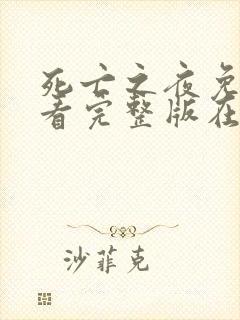 死亡之夜免
看完整版在
沙菲克